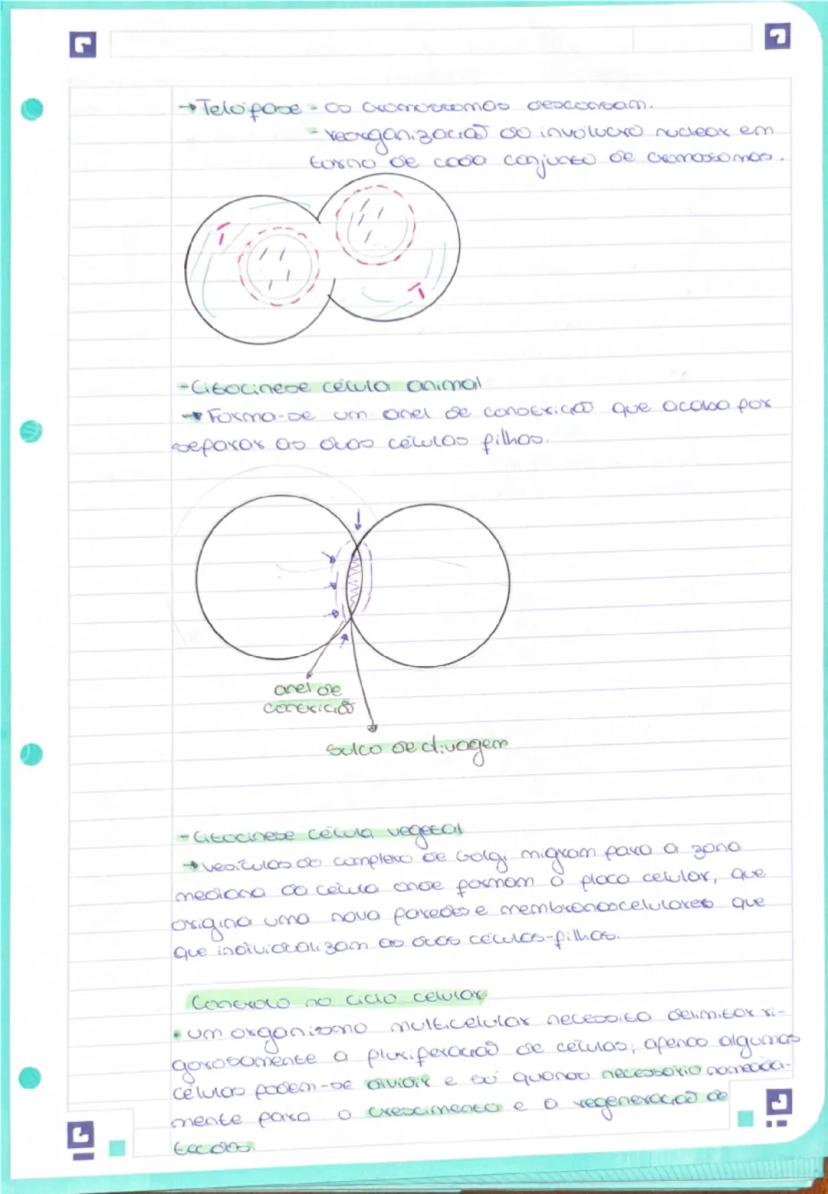 → Telófase - os cromossomas descoram.
- reorganização do involucro nuclear em
torno de cada conjunto de cromossomas.
- Citocinese célula animal
→ Forma-se um anel de constrição que acaba por
separar as duas células filhas.
anel de
constrição
sulco de clivagem
- Citocinese célula vegetal
→ vesículas do complexo de Golgi migram para a zona
mediana da célula onde formam a placa celular, que
origina uma nova parede e membranas celulares que
que individualizam as duas células-filhas.
Controlo no ciclo celular
• um organismo multicelular necessita delimitar ri-
gorosamente a pluriferação de células, apenas algumas
células podem-se dividir e só quando necessário nomeada-
mente para o crescimento e a regeneração de
tecidos.